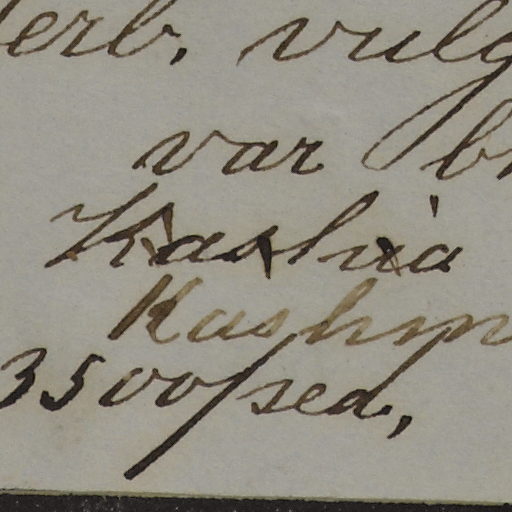 erb. vulg
var b
Kashia
Kashm
3500 ped,